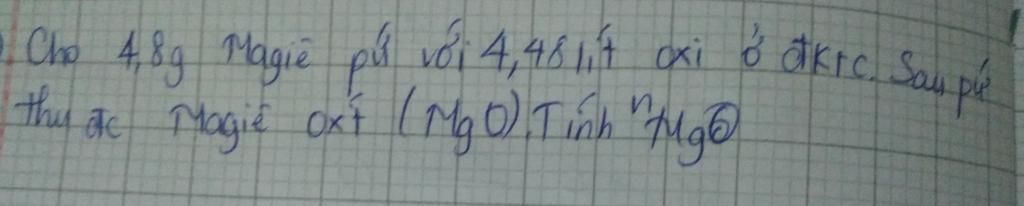 Cho 4,8g Magiê pứ với 4,48 lít oxi ở đktc. Sau pứ
thu đc Magiê oxit (MgO). Tính nMgO